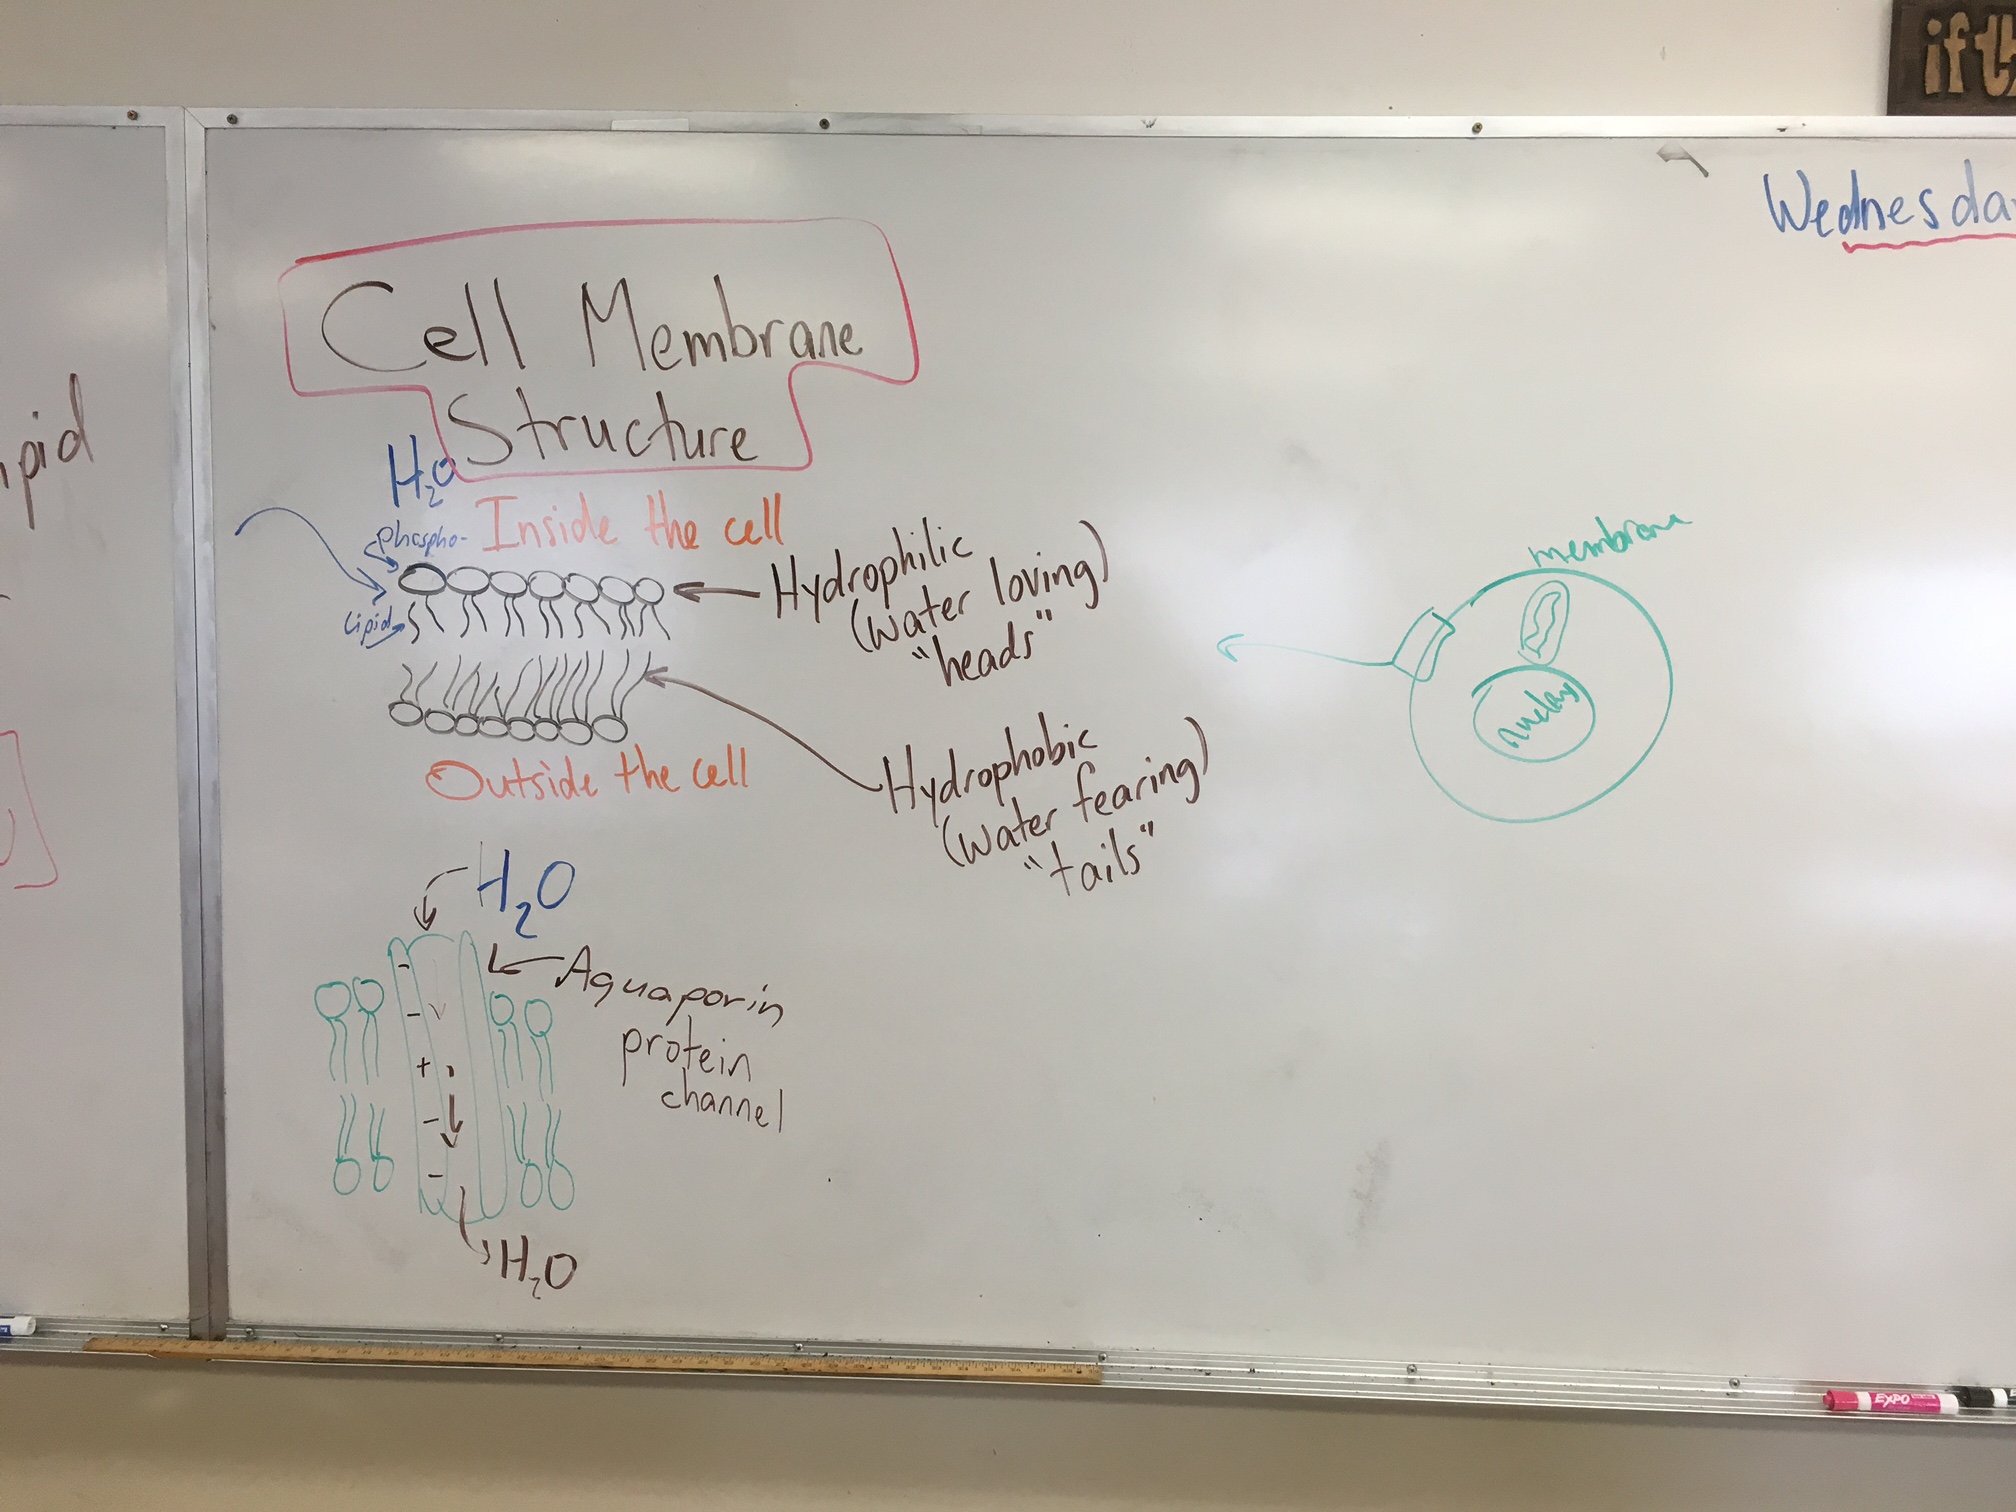 if th
Wednesda
pid
Cell Membrane
Structure
H₂O
Inside the cell
phospho-
Lipid
Hydrophilic
(water loving)
"heads"
Hydrophobic
(water fearing)
"tails"
Outside the cell
membrane
H₂O
Aquaporin
protein
channel
-
-
+
-
-
H₂O
EXPO